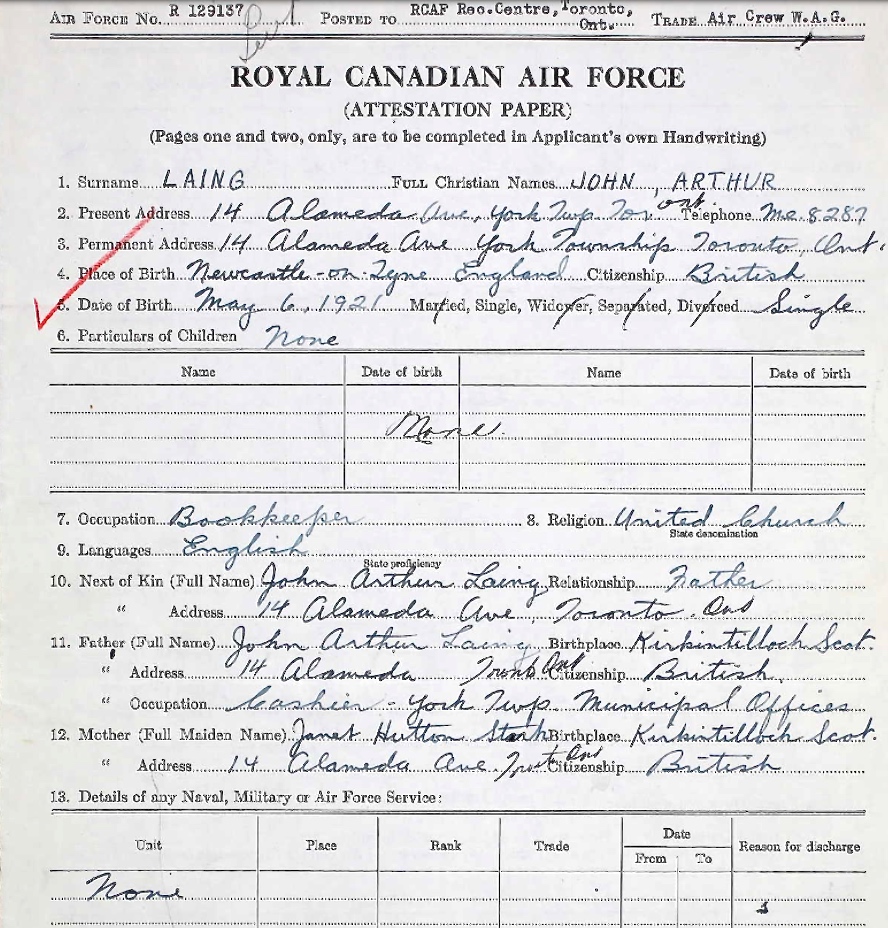 AIR FORCE No. R 129137 POSTED TO RCAF Rec.Centre, Toronto, Ont. TRADE Air Crew W.A.G.
ROYAL CANADIAN AIR FORCE
(ATTESTATION PAPER)
(Pages one and two, only, are to be completed in Applicant's own Handwriting)
1. Surname LAING FULL CHRISTIAN NAMES JOHN, ARTHUR
2. Present Address 14 Alameda Ave, York Twp. Tor ont. Telephone Me. 8287
3. Permanent Address 14 Alameda Ave York Township Toronto, Ont.
4. Place of Birth Newcastle-on-Tyne England Citizenship British
5. Date of Birth May 6, 1921 Married, Single, Widower, Separated, Divorced Single
6. Particulars of Children None
Name Date of birth Name Date of birth
None.
7. Occupation Bookkeeper 8. Religion United Church
State denomination
9. Languages English
State proficiency
10. Next of Kin (Full Name) John Arthur Laing Relationship Father
" Address 14 Alameda Ave, Toronto. Ont
11. Father (Full Name) John Arthur Laing Birthplace Kirkintilloch Scot.
" Address 14 Alameda Ont Citizenship British.
" Occupation Cashier - York Twp. Municipal Offices
12. Mother (Full Maiden Name) Janet Hutton Stark Birthplace Kirkintilloch Scot.
" Address 14 Alameda Ave. Ont Citizenship British
13. Details of any Naval, Military or Air Force Service:
Unit Place Rank Trade Date Reason for discharge
From To
None